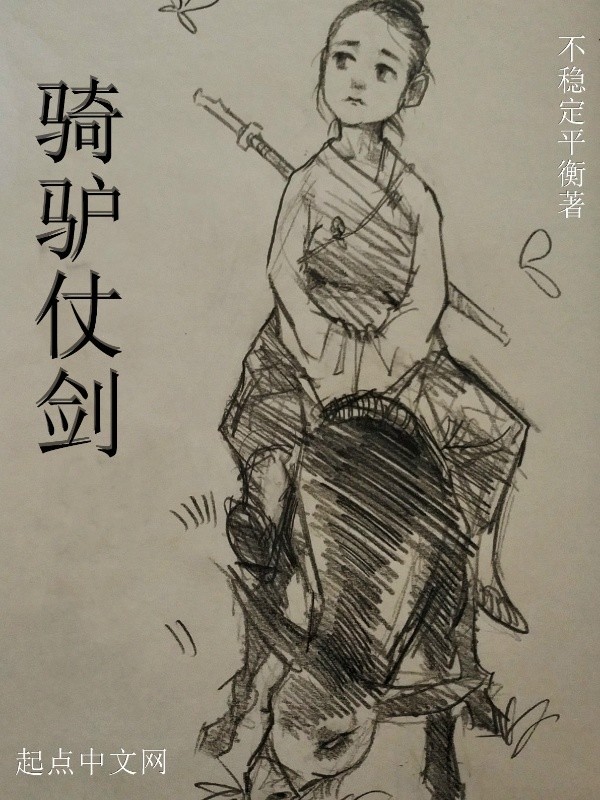 骑驴仗剑
不稳定平衡著
起点中文网